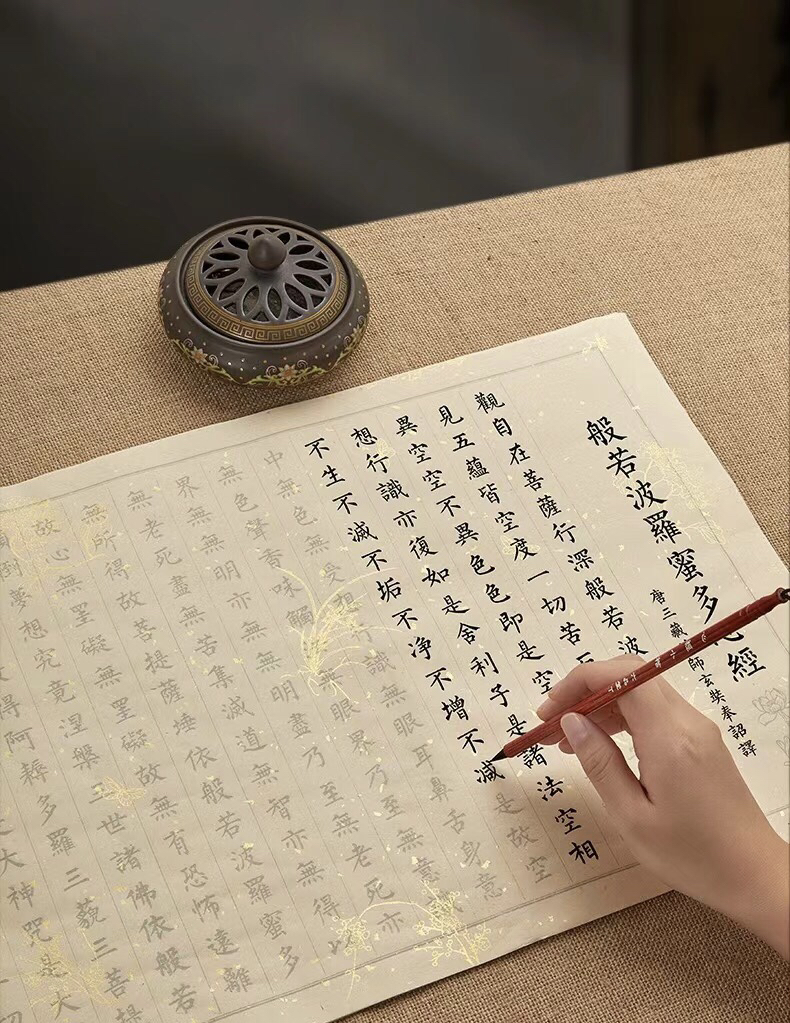 般若波羅蜜多心經
唐三藏師玄奘奉詔譯
觀自在菩薩行深般若波
見五蘊皆空度一切苦
異空空不異色色即是空
想行識亦復如是舍利子是諸法空相
不生不滅不垢不净不增不減是故空
中無色無受想行識無眼耳鼻舌身意
無色聲香味觸無眼界乃至無意
界無無明亦無無明盡乃至無老死亦
無老死盡無苦集滅道無智亦無得以
無所得故菩提薩埵依般若波羅蜜多
故心無罣礙無罣礙故無有恐怖遠離
倒夢想究竟涅槃三世諸佛依般若
得阿耨多羅三藐三菩提
大神咒是大